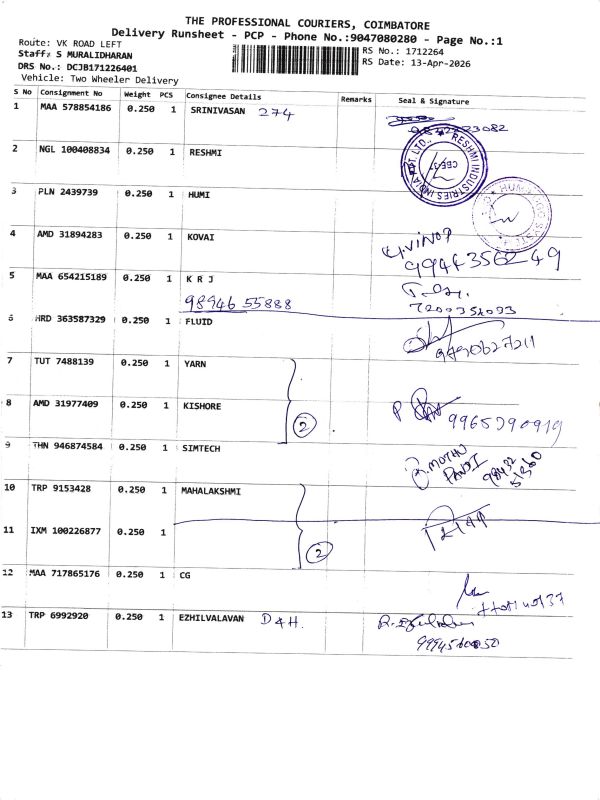 THE PROFESSIONAL COURIERS, COIMBATORE
Delivery Runsheet - PCP - Phone No.:9047080280 - Page No.:1
Route: VK ROAD LEFT
Staff: S MURALIDHARAN
DRS No.: DCJB171226401
Vehicle: Two Wheeler Delivery
RS No.: 1712264
RS Date: 13-Apr-2026
S No Consignment No Weight PCS Consignee Details Remarks Seal & Signature
1 MAA 578854186 0.250 1 SRINIVASAN 274
2 NGL 100408834 0.250 1 RESHMI
RESHMI INDUSTRIES INDIA PVT. LTD.,
3 PLN 2439739 0.250 1 HUMI
4 AMD 31894283 0.250 1 KOVAI
5 MAA 654215189 0.250 1 K R J
98946 55888
6 HRD 363587329 0.250 1 FLUID
7 TUT 7488139 0.250 1 YARN
8 AMD 31977409 0.250 1 KISHORE
2
9 THN 946874584 0.250 1 SIMTECH
10 TRP 9153428 0.250 1 MAHALAKSHMI
11 IXM 100226877 0.250 1
2
12 MAA 717865176 0.250 1 CG
13 TRP 6992920 0.250 1 EZHILVALAVAN D4H.